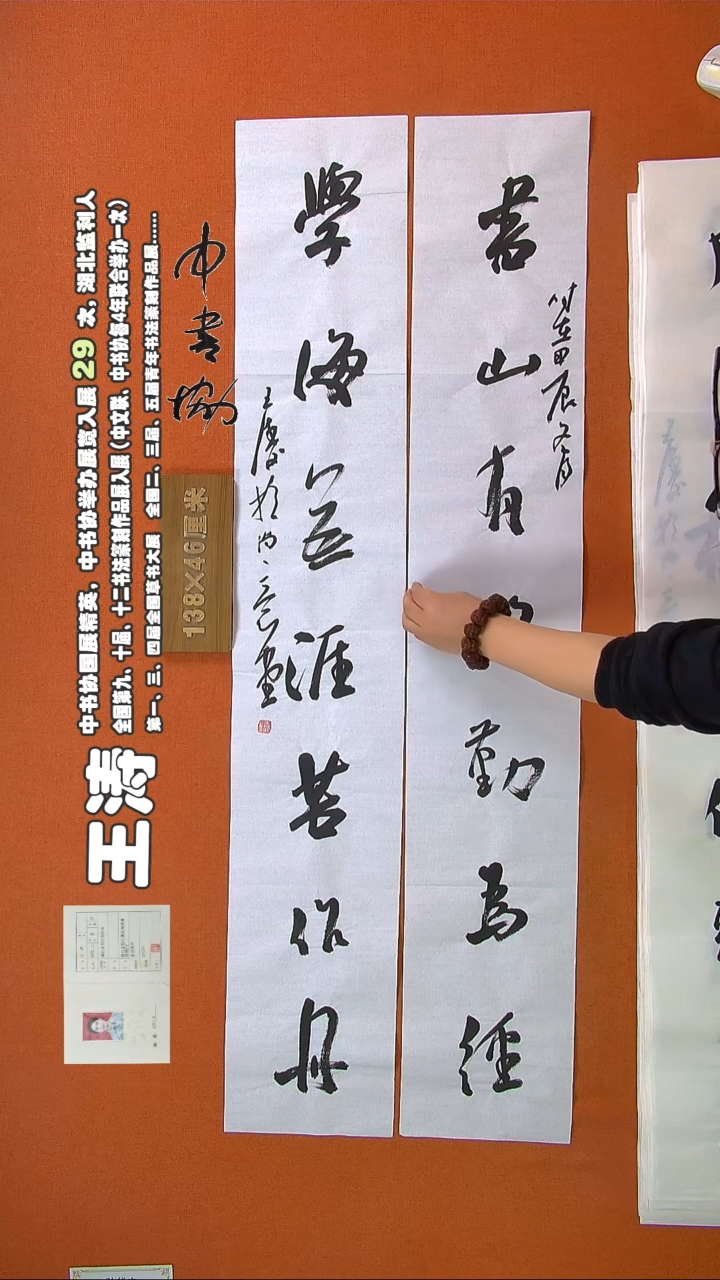 書山有
勤為徑
时在甲辰
學海無涯苦作舟
王濤於
中书协
138×46厘米
中书协国展精英，中书协举办展览入展 29 次，湖北监利人
全国第九、十届、十二书法篆刻作品展入展（中文联、中书协每4年联合举办一次）
第一、三、四届全国草书大展 全国二、三届、五届青年书法篆刻作品展……
王涛